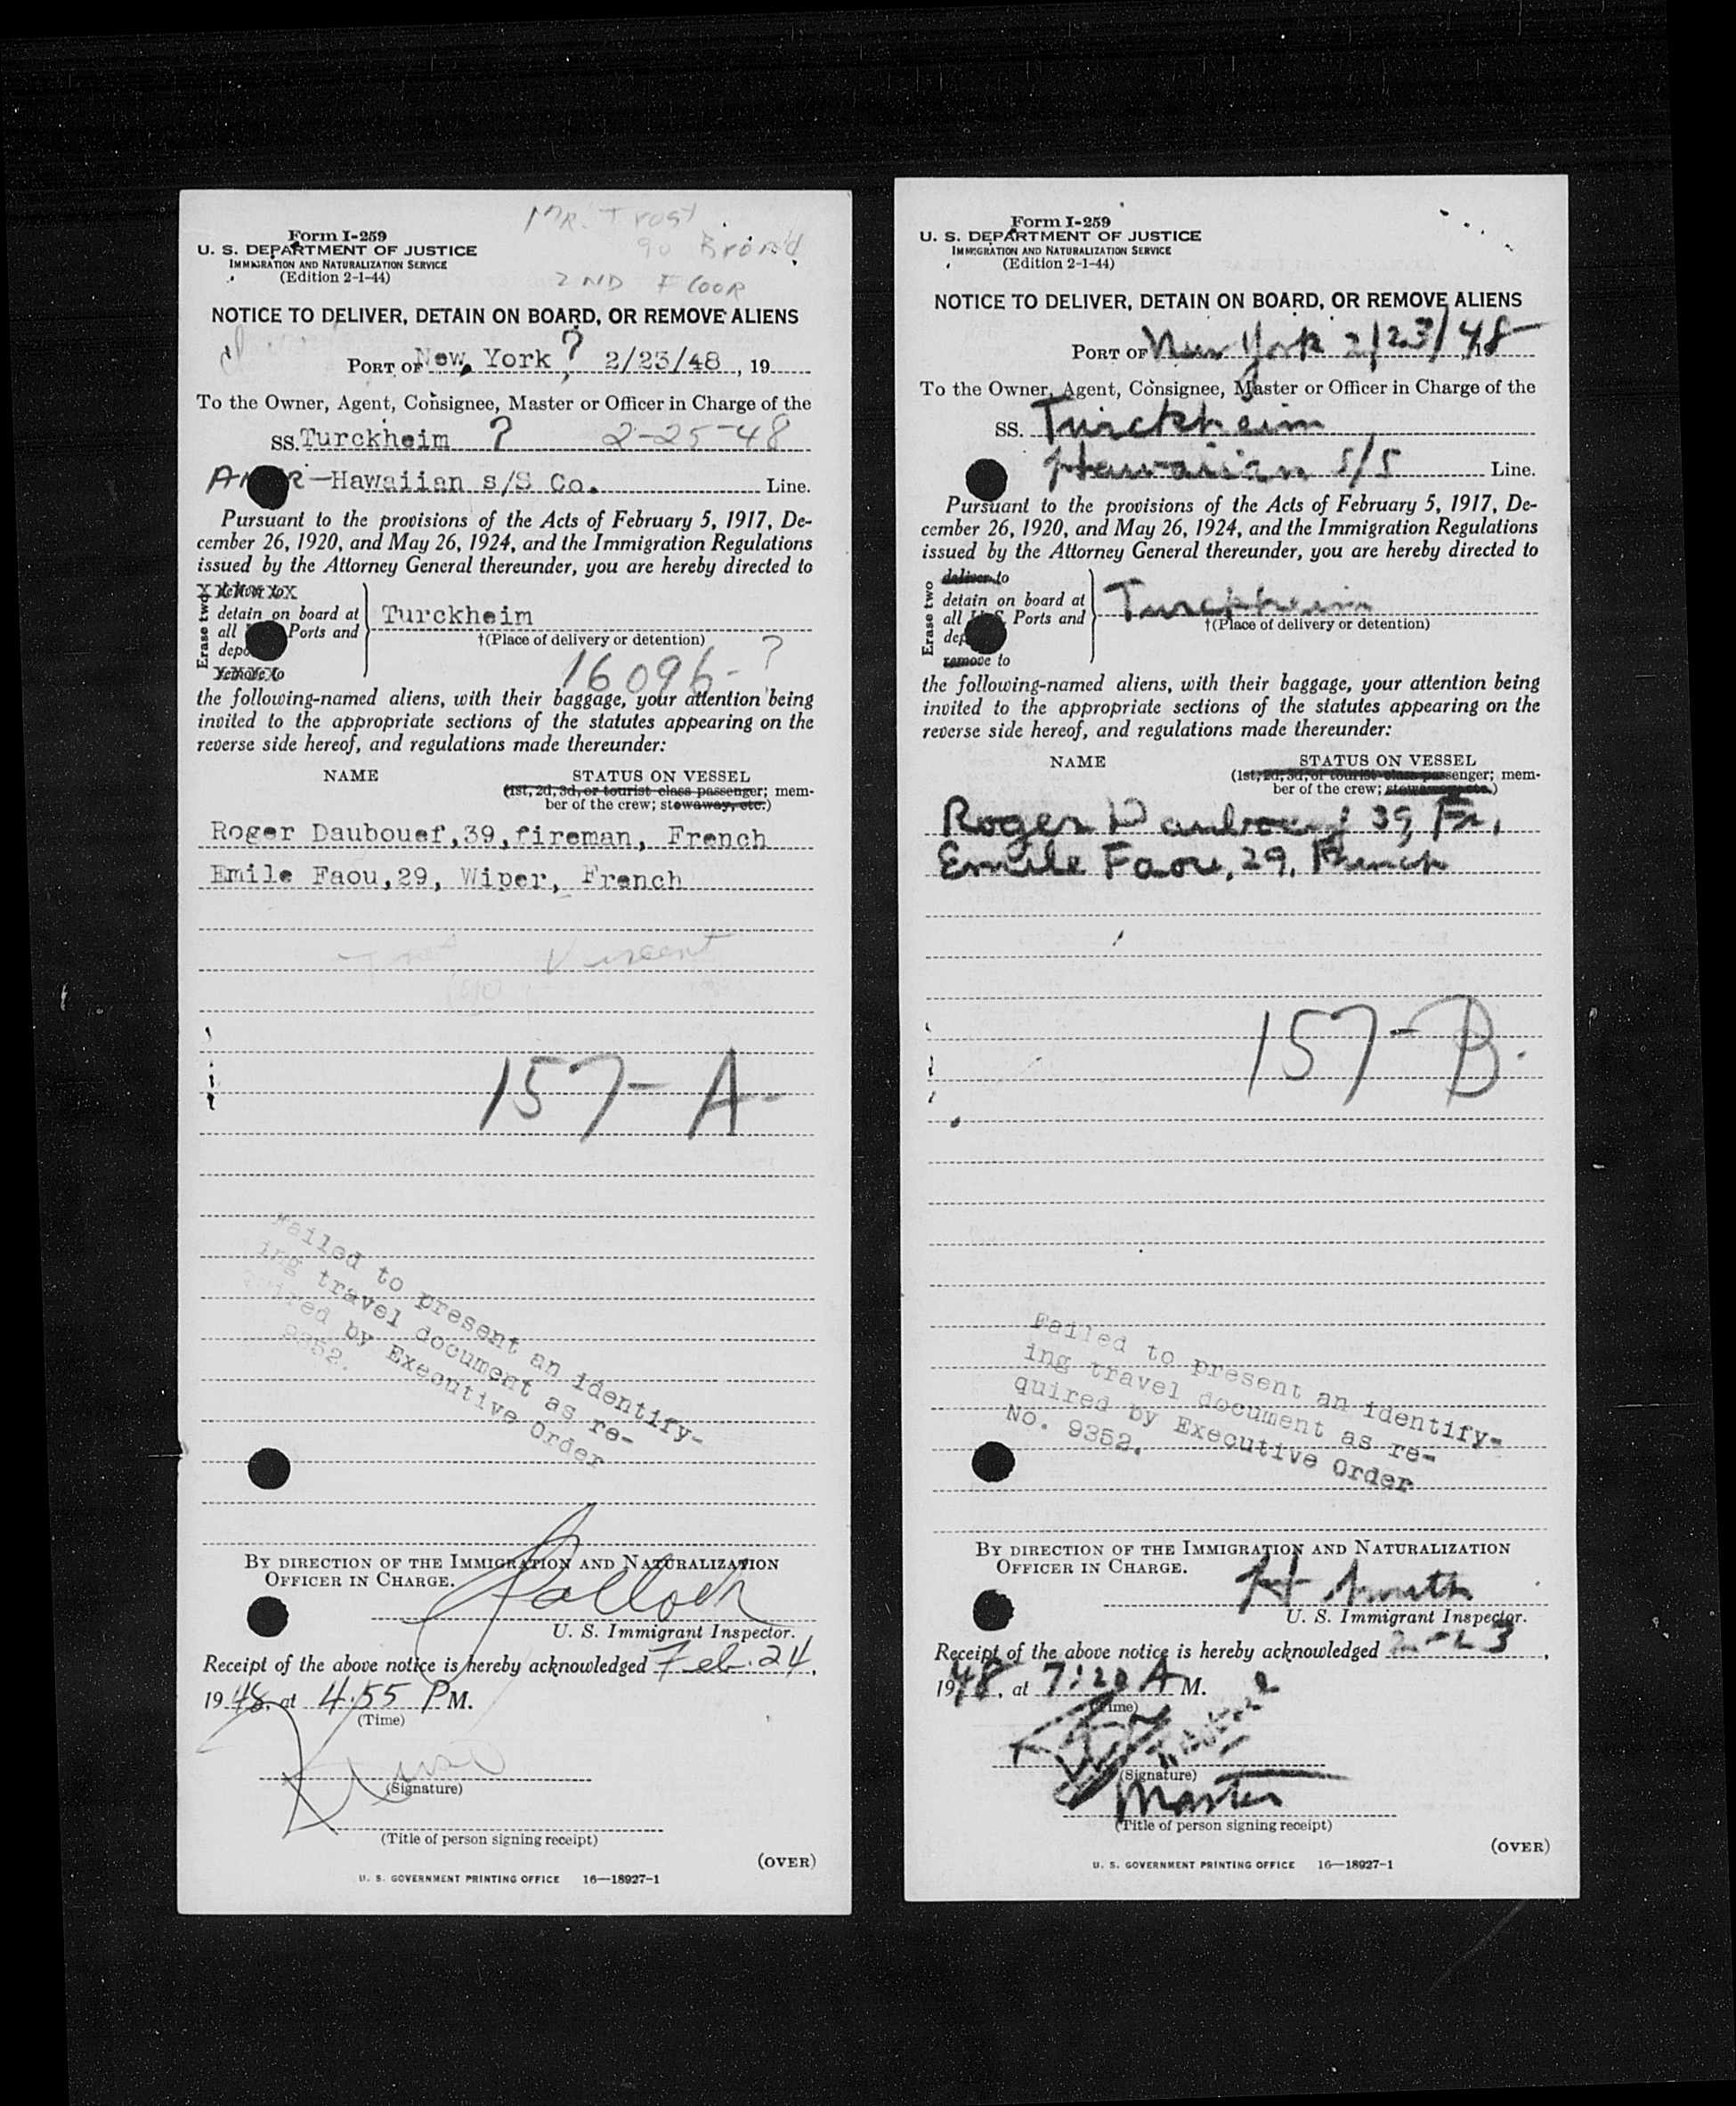 Mr. Trost
90 Broad
2ND FLOOR
Form I-259
U. S. DEPARTMENT OF JUSTICE
IMMIGRATION AND NATURALIZATION SERVICE
(Edition 2-1-44)
NOTICE TO DELIVER, DETAIN ON BOARD, OR REMOVE ALIENS
PORT OF New York ? 2/23/48, 19
To the Owner, Agent, Consignee, Master or Officer in Charge of the
SS. Turckheim ? 2-25-48
AMER-Hawaiian s/S Co. Line.
Pursuant to the provisions of the Acts of February 5, 1917, De-
cember 26, 1920, and May 26, 1924, and the Immigration Regulations
issued by the Attorney General thereunder, you are hereby directed to
Erase two
deliver to
detain on board at
all U. S. Ports and
deport
remove to
Turckheim
†(Place of delivery or detention)
16096-?
the following-named aliens, with their baggage, your attention being
invited to the appropriate sections of the statutes appearing on the
reverse side hereof, and regulations made thereunder:
NAME STATUS ON VESSEL
(1st, 2d, 3d, or tourist class passenger; mem-
ber of the crew; stowaway, etc.)
Roger Daubouef,39,fireman, French
Emile Faou,29, Wiper, French
Vincent
157-A-
Failed to present an identify-
ing travel document as re-
quired by Executive Order
9352.
BY DIRECTION OF THE IMMIGRATION AND NATURALIZATION
OFFICER IN CHARGE.
U. S. Immigrant Inspector.
Receipt of the above notice is hereby acknowledged Feb. 24,
1948, at 4:55 PM.
(Time)
(Signature)
(Title of person signing receipt)
(OVER)
U. S. GOVERNMENT PRINTING OFFICE 16—18927-1
Form I-259
U. S. DEPARTMENT OF JUSTICE
IMMIGRATION AND NATURALIZATION SERVICE
(Edition 2-1-44)
NOTICE TO DELIVER, DETAIN ON BOARD, OR REMOVE ALIENS
PORT OF New York 2/23/48 19
To the Owner, Agent, Consignee, Master or Officer in Charge of the
SS. Turckheim
Hawaiian S/S Line.
Pursuant to the provisions of the Acts of February 5, 1917, De-
cember 26, 1920, and May 26, 1924, and the Immigration Regulations
issued by the Attorney General thereunder, you are hereby directed to
Erase two
deliver to
detain on board at
all U. S. Ports and
deport
remove to
Turckheim
†(Place of delivery or detention)
the following-named aliens, with their baggage, your attention being
invited to the appropriate sections of the statutes appearing on the
reverse side hereof, and regulations made thereunder:
NAME STATUS ON VESSEL
(1st, 2d, 3d, or tourist class passenger; mem-
ber of the crew; stowaway, etc.)
Roger Daubouef 39, Fr,
Emile Faou, 29, French
157-B.
Failed to present an identify-
ing travel document as re-
quired by Executive Order
No. 9352.
BY DIRECTION OF THE IMMIGRATION AND NATURALIZATION
OFFICER IN CHARGE.
H Smith
U. S. Immigrant Inspector.
Receipt of the above notice is hereby acknowledged 2-23,
1948, at 7:20 A M.
(Time)
(Signature)
Master
(Title of person signing receipt)
(OVER)
U. S. GOVERNMENT PRINTING OFFICE 16—18927-1